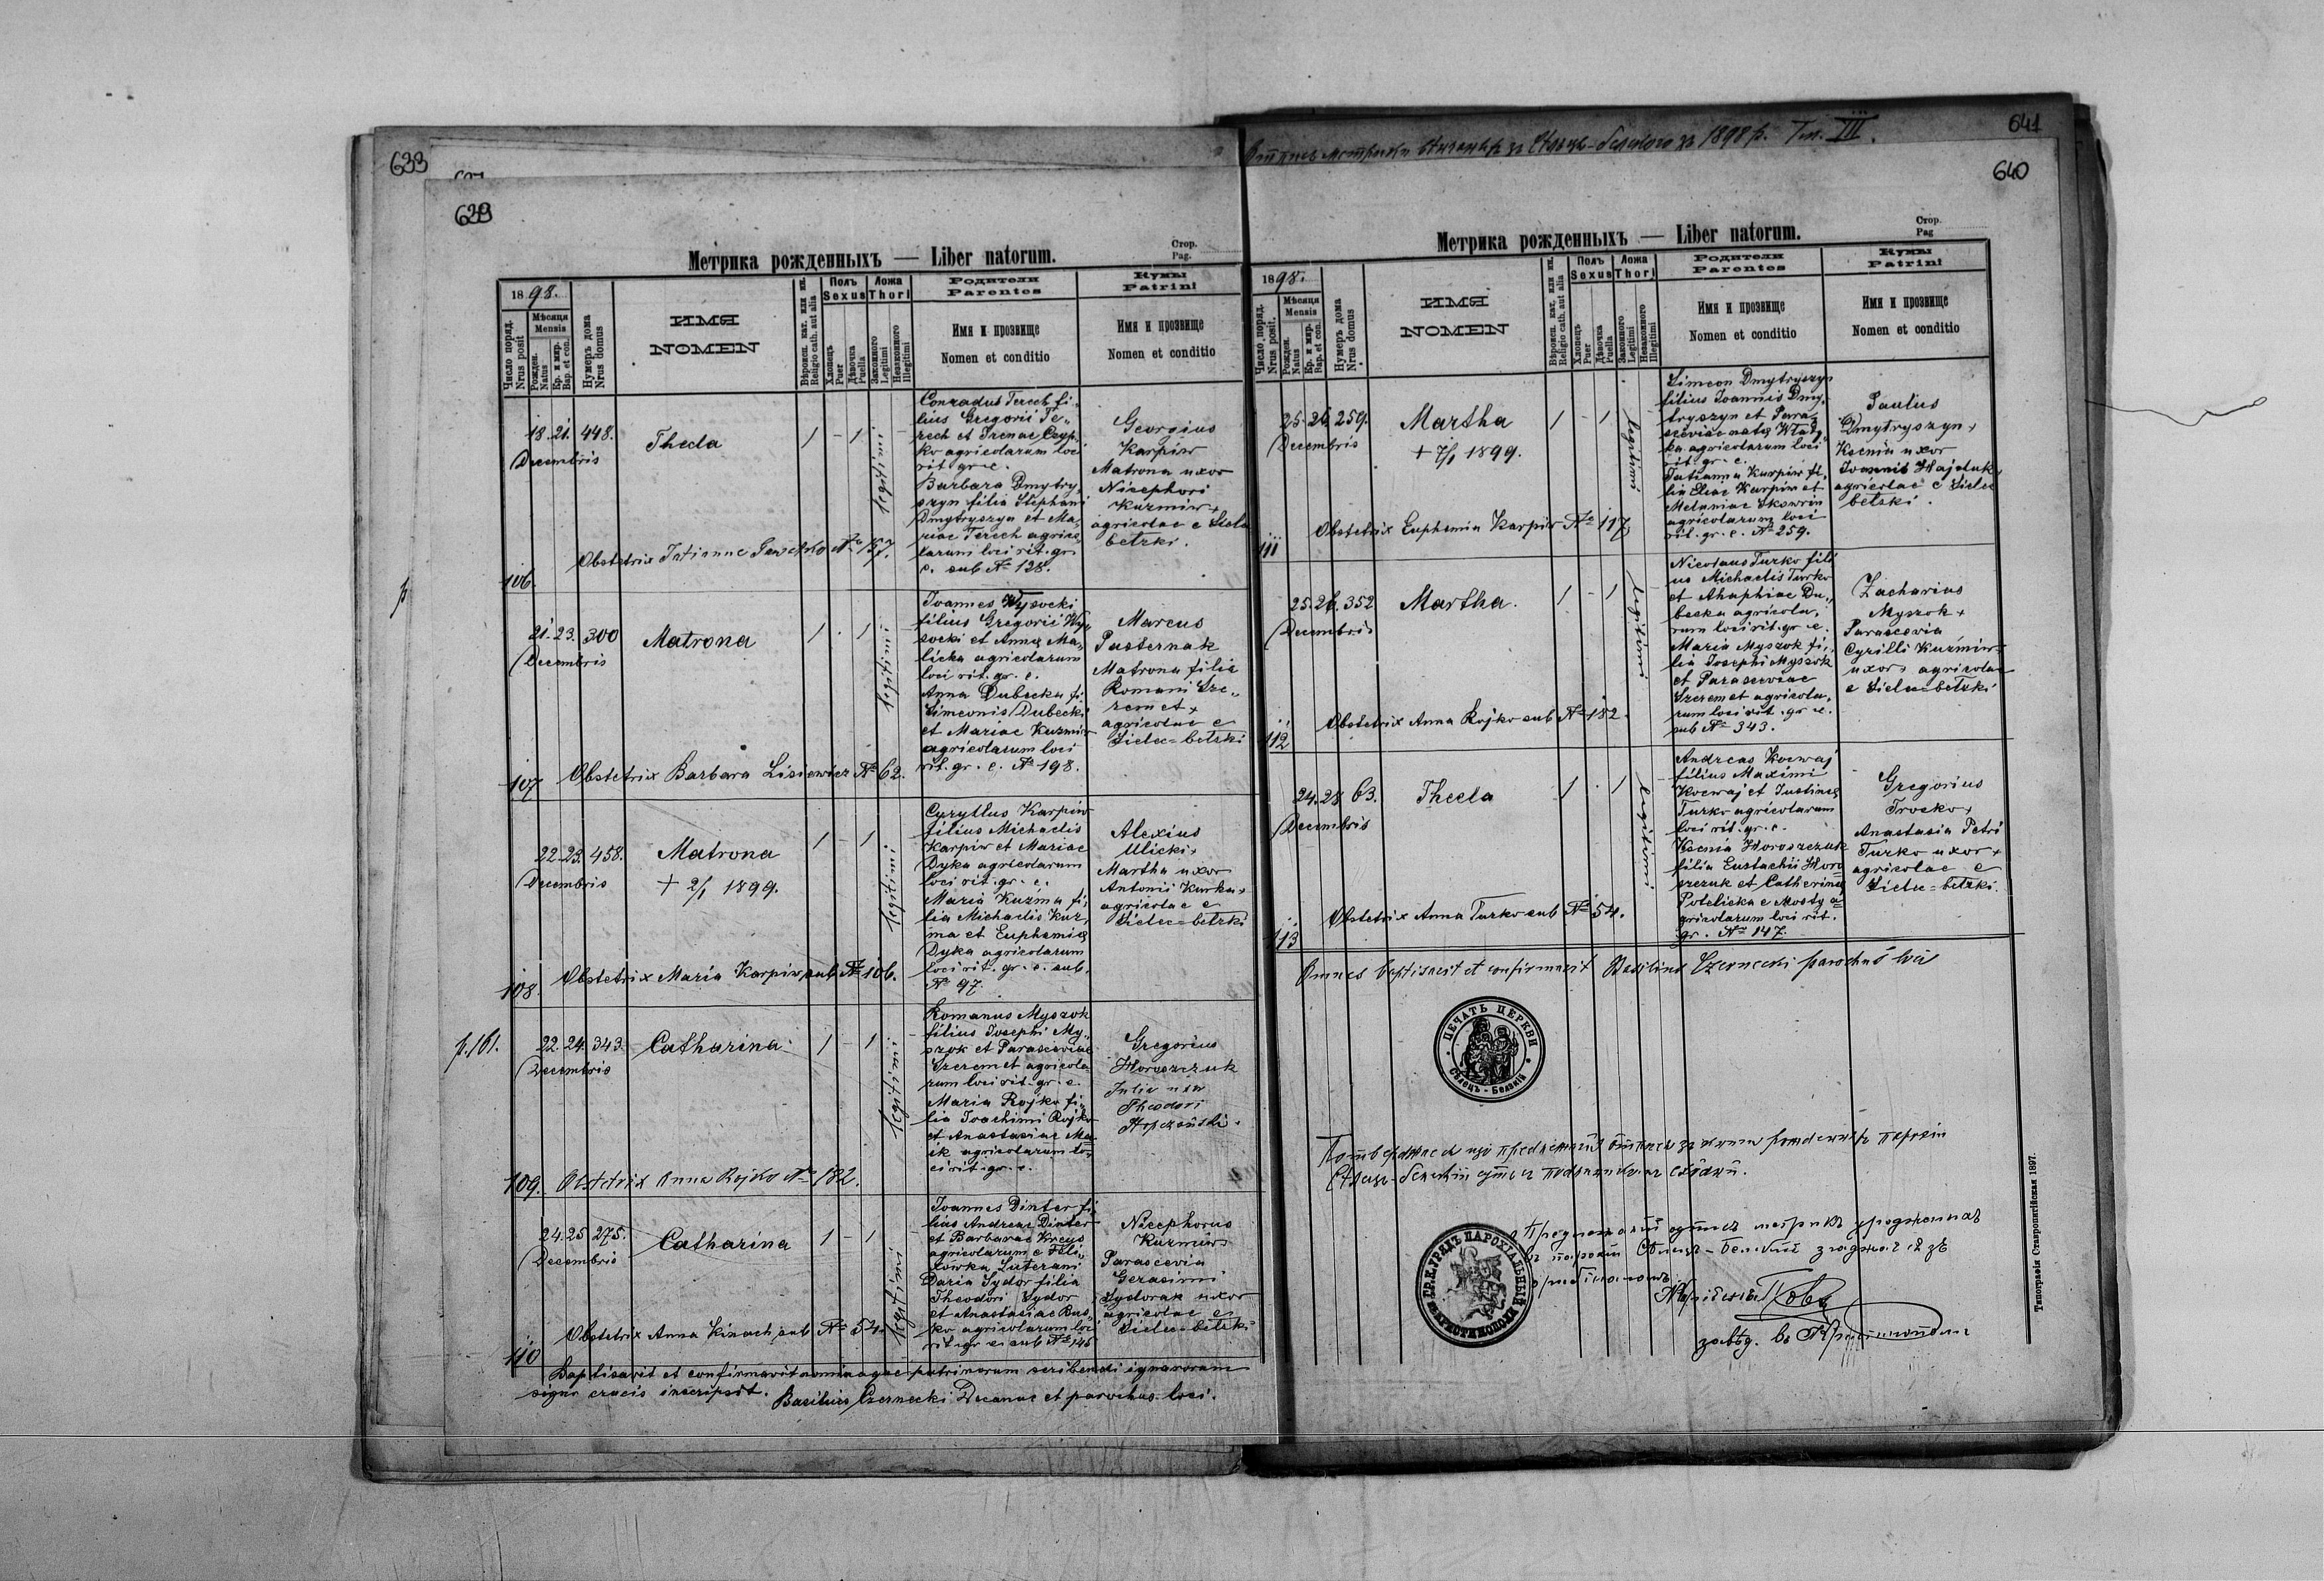 633
639
Метрика рожденныхъ — Liber natorum.
Стор.
Pag.
1898.
Число поряд.
Nrus posit
Мѣсяця
Mensis
Рожден.
Natus
Кр. и мир.
Bap. et con.
Нумеръ дома
Nrus domus
ИМЯ
NOMEN
Вѣроисп. кат. или ин.
Religio cath. aut alia
Полъ
Sexus
Хлопецъ
Puer
Дѣвочка
Puella
Ложа
Thori
Законного
Legitimi
Незаконного
Illegitimi
Родители
Parentes
Имя и прозвище
Nomen et conditio
Кумы
Patrini
Имя и прозвище
Nomen et conditio
106.
18. 21. 448.
Decembris
Thecla
1 - 1
legitimi
Conradus Terech fi„
lius Gregorii Te„
rech et Irenae
ko agricolarum loci
rit. gr. c.
Barbara Dmytry„
szyn filia Stephani
Dmytryszyn et Ma„
riae Terech agrico„
larum loci rit. gr.
c. sub № 128.
Georgius
Karpiw
Matrona uxor
Nicephori
Kuzmiw +
agricolae e Sielec
betzki.
Obstetrix № 157.
107
21. 23. 300
Decembris
Matrona
1 . 1
legitimi
Joannes Wysocki
filius Gregorii Wy„
socki et Annae Ma„
licka agricolarum
loci rit. gr. c.
Anna Dubecka fi.
Simeonis Dubecki
et Mariae Kuzmiw
agricolarum loci
rit. gr. c. № 198.
Marcus
Pasternak
Matrona filia
Romani Sze„
remet +
agricolae e
Sielec=betzki
Obstetrix Barbara Lisiewicz № 62.
108.
22. 23. 458.
Decembris
Matrona
+ 2/1 1899.
1 - 1
legitimi
Cyryllus Karpiw
filius Michaelis
Karpiw et Mariae
Dyka agricolarum
loci rit. gr. c.
Maria Kuzma fi„
lia Michaelis Kuz„
ma et Euphemiae
Dyka agricolarum
loci rit. gr. c. sub.
№ 97.
Alexius
Ulicki +
Martha uxor
Antonii Kurka +
agricolae e
Sielec=betzki
Obstetrix Maria Karpiw sub № 106.
p. 161.
109.
22. 24. 343.
Decembris
Catharina
1 - 1
legitimi
Romanus Myszok
filius Josephi My„
szok et Parasceviae
Szeremet agricola„
rum loci rit. gr. c.
Maria Rojko fi„
lia Joachimi Rojko
et Anastasiae
agricolarum lo„
ci rit. gr. c.
Gregorius
Horoszczuk
Julia uxor
Theodori
Obstetrix Anna Rojko № 182.
110
24. 25 275.
Decembris
Catharina
1 - 1
legitimi
Joannes Dinter fi
lius Andreae Dinter
et Barbarae
agricolarum e
Luterani
Daria Sydor filia
Theodori Sydor
et Anastasiae Bus„
ko agricolarum loci
rit. gr. c. sub № 146
Nicephorus
Kuzmiw
Parascevia
Gerasimi
Sydorak uxor
agricolae e
Sielec=betzki
Obstetrix Anna Kinach sub № 54.
Baptisavit et confirmavit nominaque patrinorum scribendi ignarorum
signo crucis inscripsit. Basilius Czernecki Decanus et parochus loci.
1898 р. III.
641
640
Метрика рожденныхъ — Liber natorum.
Стор.
Pag
1898.
Число поряд.
Nrus posit.
Мѣсяця
Mensis
Рожден.
Natus
Кр. и мир.
Bap. et con.
Нумеръ дома
Nrus domus
ИМЯ
NOMEN
Вѣроисп. кат. или ин.
Religio cath. aut alia
Полъ
Sexus
Хлопецъ
Puer
Дѣвочка
Puella
Ложа
Thori
Законного
Legitimi
Незаконного
Illegitimi
Родители
Parentes
Имя и прозвище
Nomen et conditio
Кумы
Patrini
Имя и прозвище
Nomen et conditio
111
25. 26. 259.
Decembris
Martha
+ 7/1 1899.
1 - 1
legitimi
Simeon Dmytryszyn
filius Joannis Dmy„
tryszyn et Para„
sceviae natae
ka agricolarum loci
rit. gr. c.
Tatianna Karpiw fi„
lia Eliae Karpiw et
Melaniae Skowrin
agricolarum loci
rit. gr. c. № 259.
Paulus
Dmytryszyn +
Ksenia uxor
Joannis Hajduk +
agricolae e Sielec
betzki.
Obstetrix Euphemia Karpiw № 117
112
25. 26. 352
Decembris
Martha.
1 - 1
legitimi
Nicolaus Turko fili
us Michaelis Turko
et Ahaphiae Du„
becka agricola„
rum loci rit. gr. c.
Maria Myszok fi„
lia Josephi Myszok
et Parasceviae
Szeremet agricola„
rum loci rit. gr. c.
sub № 343.
Zacharias
Myszok +
Parascevia
Cyrilli Kuzmiw
uxor + agricolae
e Sielec=betzki
Obstetrix Anna Rojko sub № 182.
113
24. 28 63.
Decembris
Thecla
1 . 1
legitimi
Andreas Kocwaj
filius Maximi
Kocwaj et Justinae
Turko agricolarum
loci rit. gr. c.
Ksenia Horoszczuk
filia Eustachii Horo
szczuk et Catherinae
Potelicka e Mosty a=
gricolarum loci rit.
gr. № 147.
Gregorius
Trocko +
Anastasia Petri
Turko uxor +
agricolae e
Sielec=betzki.
Obstetrix Anna Turko sub № 54.
Omnes baptisavit et confirmavit Basilius Czernecki parochus loci
ПЕЧАТЬ ЦЕРКВИ
Сѣлецъ-Белзкій
Типографія Ставропигійская 1897.